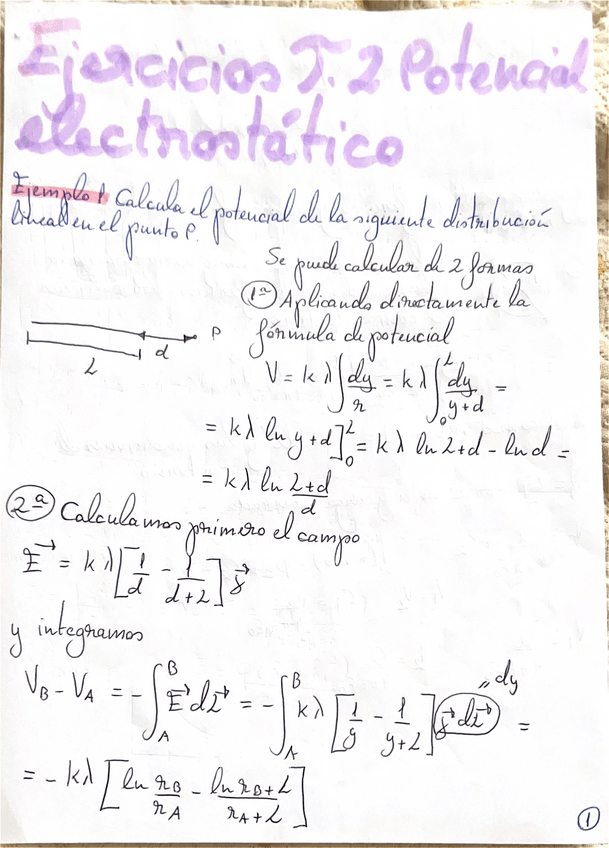 Ejercicios T.2 Potencial
electrostático
Ejemplo 1 Calcula el potencial de la siguiente distribución
lineal en el punto P.
Se puede calcular de 2 formas
1ª Aplicando directamente la
fórmula de potencial
P
d
L
V = k λ ∫ dy/r = k λ ∫₀ᴸ dy/y+d =
= k λ ln y+d ]₀ᴸ = k λ ln L+d - ln d =
= k λ ln L+d/d
2ª Calculamos primero el campo
E⃗ = k λ [1/d - 1/d+L] j⃗
y integramos
V_B - V_A = - ∫_A^B E⃗ dL⃗ = - ∫_A^B k λ [1/y - 1/y+L] j⃗ dL⃗ =
" dy
= - k λ [ln r_B/r_A - ln r_B+L/r_A+L]
1